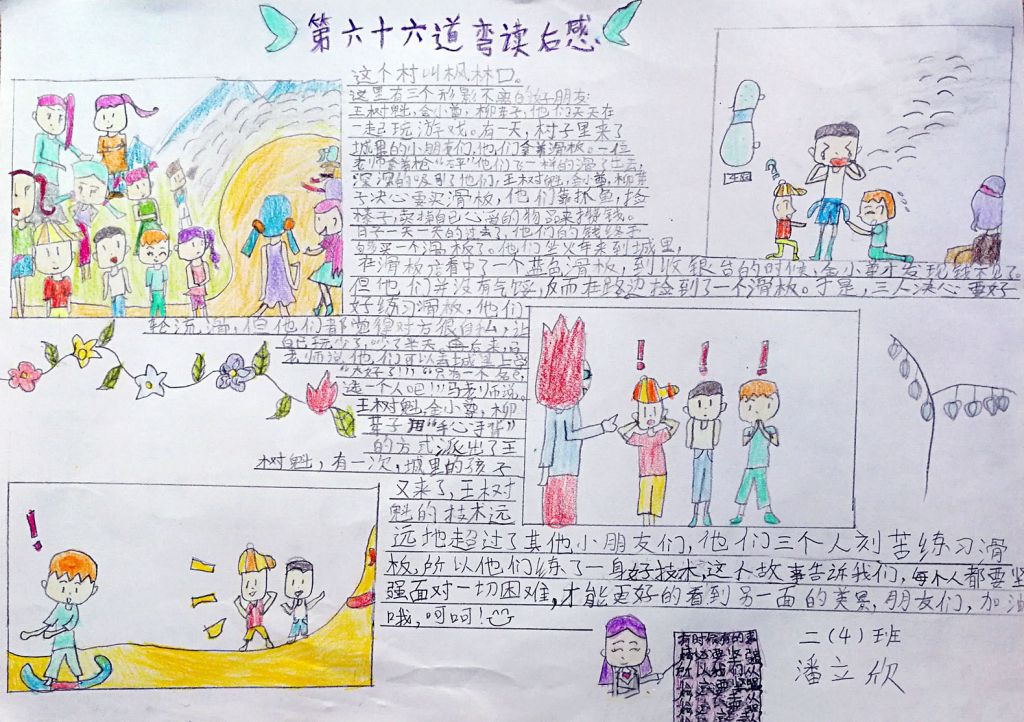 第六十六道弯读后感
这个村叫枫林口。
这里有三个形影不离的好朋友:
王树魁,金小尊,柳苇子,他们天天在
一起玩游戏。有一天,村子里来了
城里的小朋友们,他们拿着滑板。一位
老师拿着枪“砰”他们飞一样的滑了出去,
深深的吸引了他们,王树魁,金小尊,柳苇
子决心要买滑板,他们靠抓鱼,捡
榛子,卖掉自己心爱的物品来攒钱。
日子一天一天的过去了,他们的钱终于
够买一个滑板了。他们坐火车来到城里,
在滑板店看中了一个蓝色滑板,到收银台的时候,金小尊才发现钱不见了。
但他们并没有气馁,反而在路边捡到了一个滑板。于是,三人决心要好
好练习滑板,他们
轮流滑,但他们都觉得对方很自私,让
自己玩少了,吵了半天,再后来,马
老师说他们可以去城里上学
“太好了!!”“只有一个名
选一个人吧!!!马老师说。
王树魁,金小尊,柳
苇子用“手心手背”
的方式派出了王
树魁,有一次,城里的孩子
又来了,王树
魁的技术远
远地超过了其他小朋友们,他们三个人刻苦练习滑
板,所以他们练了一身好技术,这个故事告诉我们,每个人都要坚
强面对一切困难,才能更好的看到另一面的美景,朋友们,加油
哦,呵呵!
有时候有的
二(4)班
潘立欣